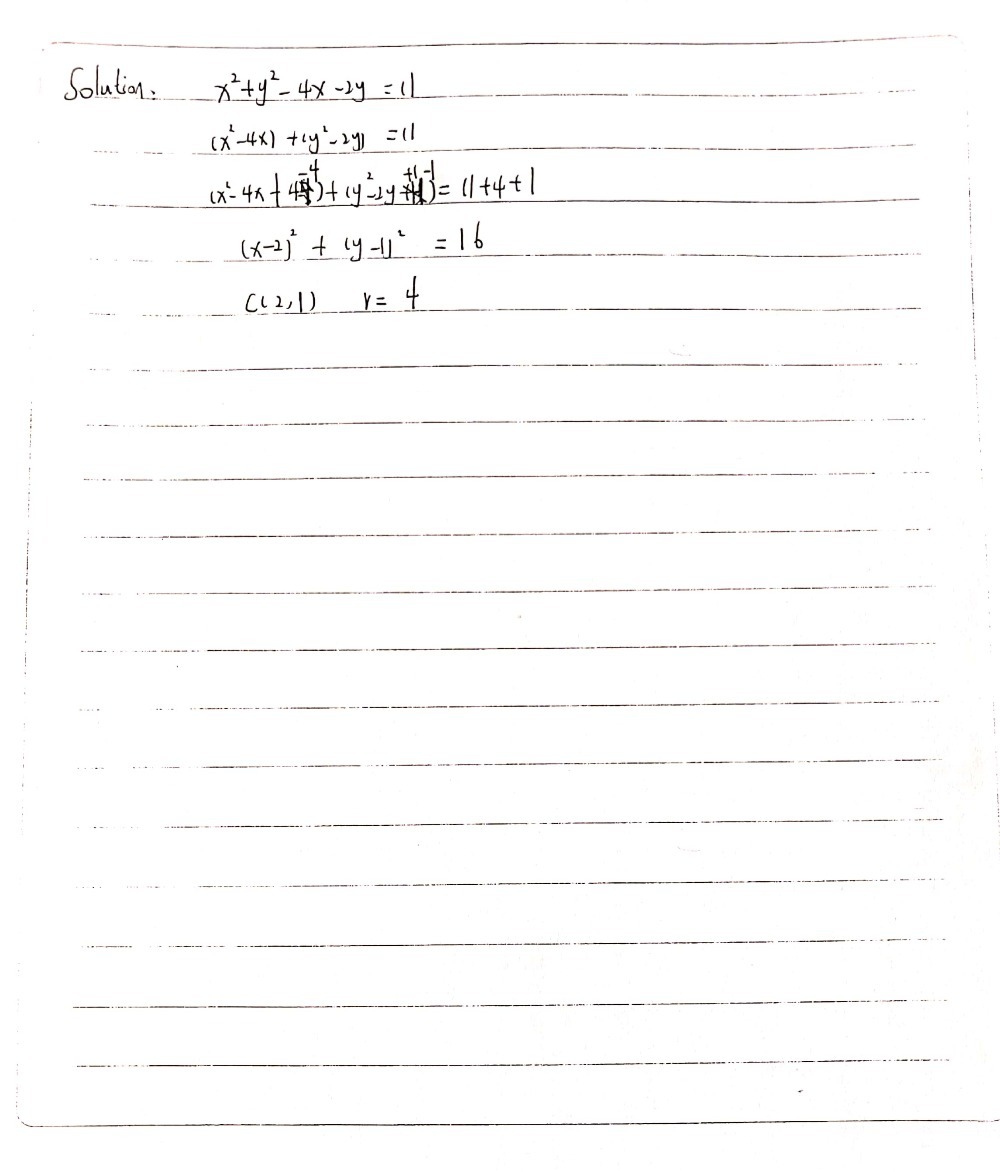 Solution: x²+y²-4x-2y=11
(x²-4x)+(y²-2y)=11
(x²-4x+4)+(y²-2y+1)=11+4+1
(x-2)²+(y-1)²=16
C(2,1) r=4